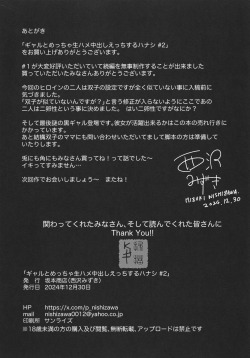 あとがき
「ギャルとめっちゃ生ハメ中出しえっちするハナシ #2」
をお買い上げありがとうございます。
#1が大変好評いただいていて続編を無事制作することが出来ました
買っていただいたみなさんありがとうございます。
今回のヒロインの二人は双子の設定ですが全く似ていない事に入稿前に
気づきました。
「双子が似ていないんですが?」と言う修正が入らないようにここであの
二人は二卵性ということにしておきました。はい二卵性ですがなにか?
そして最後謎の黒ギャル登場です。彼女が活躍出来るかはこの本の売り行きに
かかっています。
あと結構双子のママにも伺う人出ていただいていて
兎にも角にもみなさん買ってね!って話でした〜
イキってすみません…
次回作でお会いしましょう〜 またね!
西沢みずき
MIZUKI NISHIZAWA
2024.12.30
関わってくれたみなさん、そして読んでくれた皆さんに
Thank You!!
「ギャルとめっちゃ生ハメ中出しえっちするハナシ #2」
発 行 坂本商店(西沢みずき)
発行日 2024年12月30日
HP https://x.com/p_nishizawa
mail nishizawa0012@yahoo.co.jp
印刷所 サンライズ
※18歳未満の方の購入及び閲覧、無断転載、アップロードは禁止です